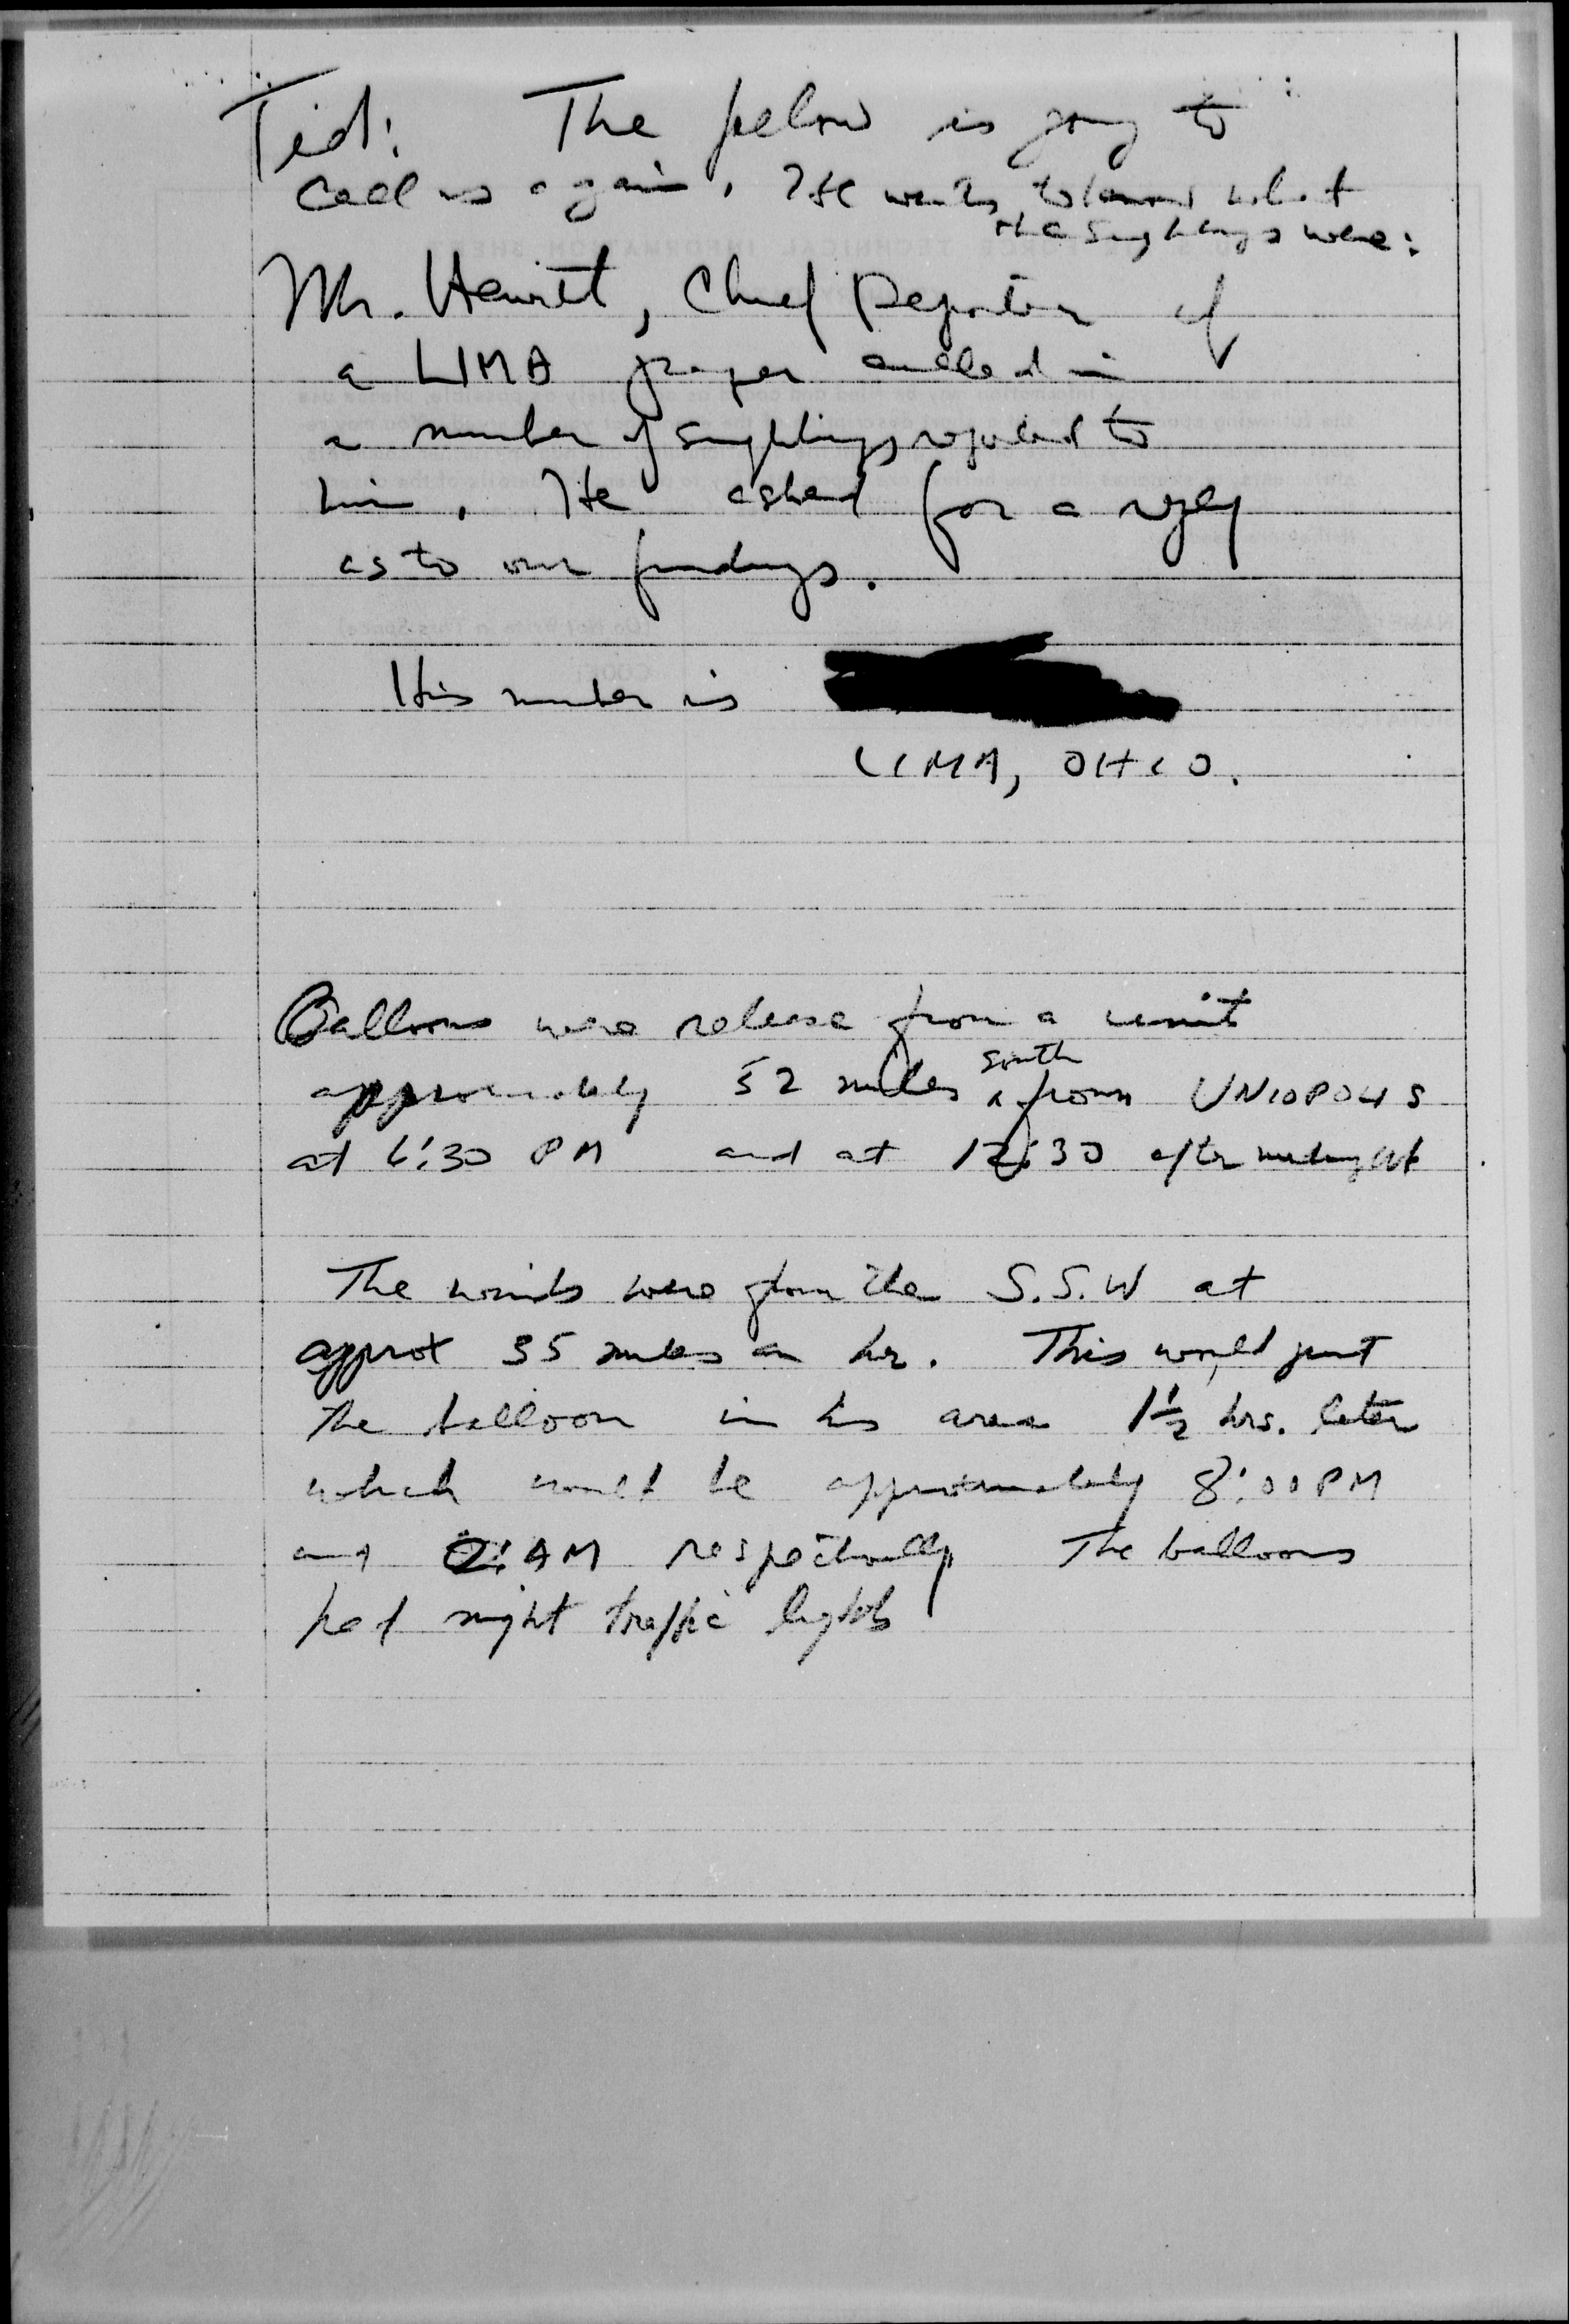 Ted: The felow is going to
call us again. He wants to know what
the sightings were:
Mr. Hewitt, Chief Reporter of
a LIMA paper called in
a number of sightings reported to
him. He asked for a reply
as to our findings.
His number is
LIMA, OHIO.
Balloons were release from a unit
approximately 52 miles south from UNIOPOLIS
at 6:30 PM and at 12:30 after midnight
The winds were from the S.S.W at
approx 35 miles an hr. This would put
the balloon in his area 1½ hrs. later
which would be approximately 8:00 PM
and 2: AM respectively The balloons
had night traffic lights